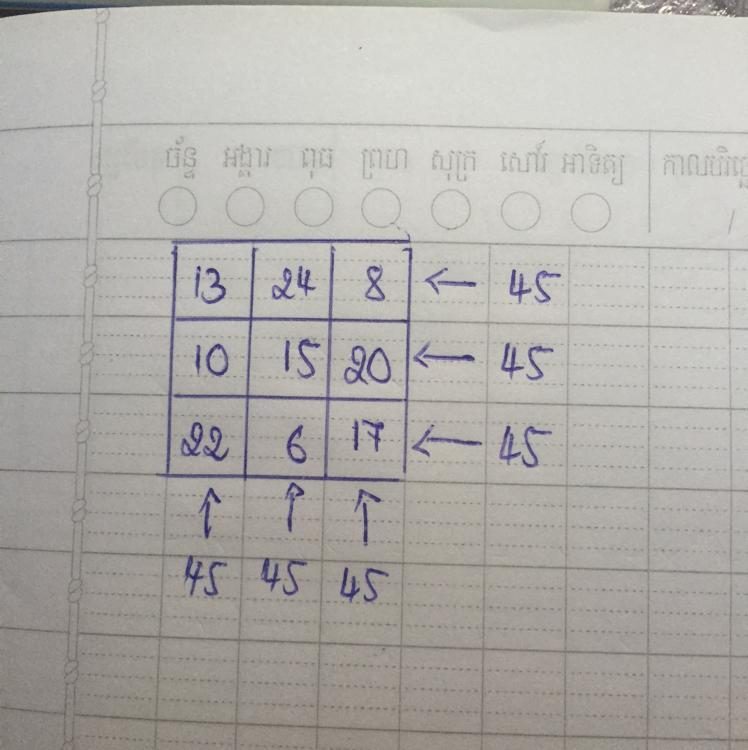 ច័ន្ទ អង្គារ ពុធ ព្រហ សុក្រ សៅរ៍ អាទិត្យ
/
13 24 8 ← 45
10 15 20 ← 45
22 6 17 ← 45
↑ ↑ ↑
45 45 45